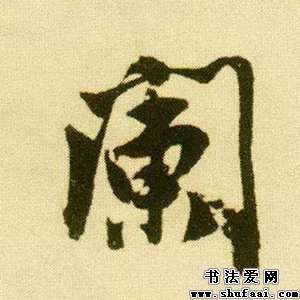 阑
书法爱网
www.shufaai.com